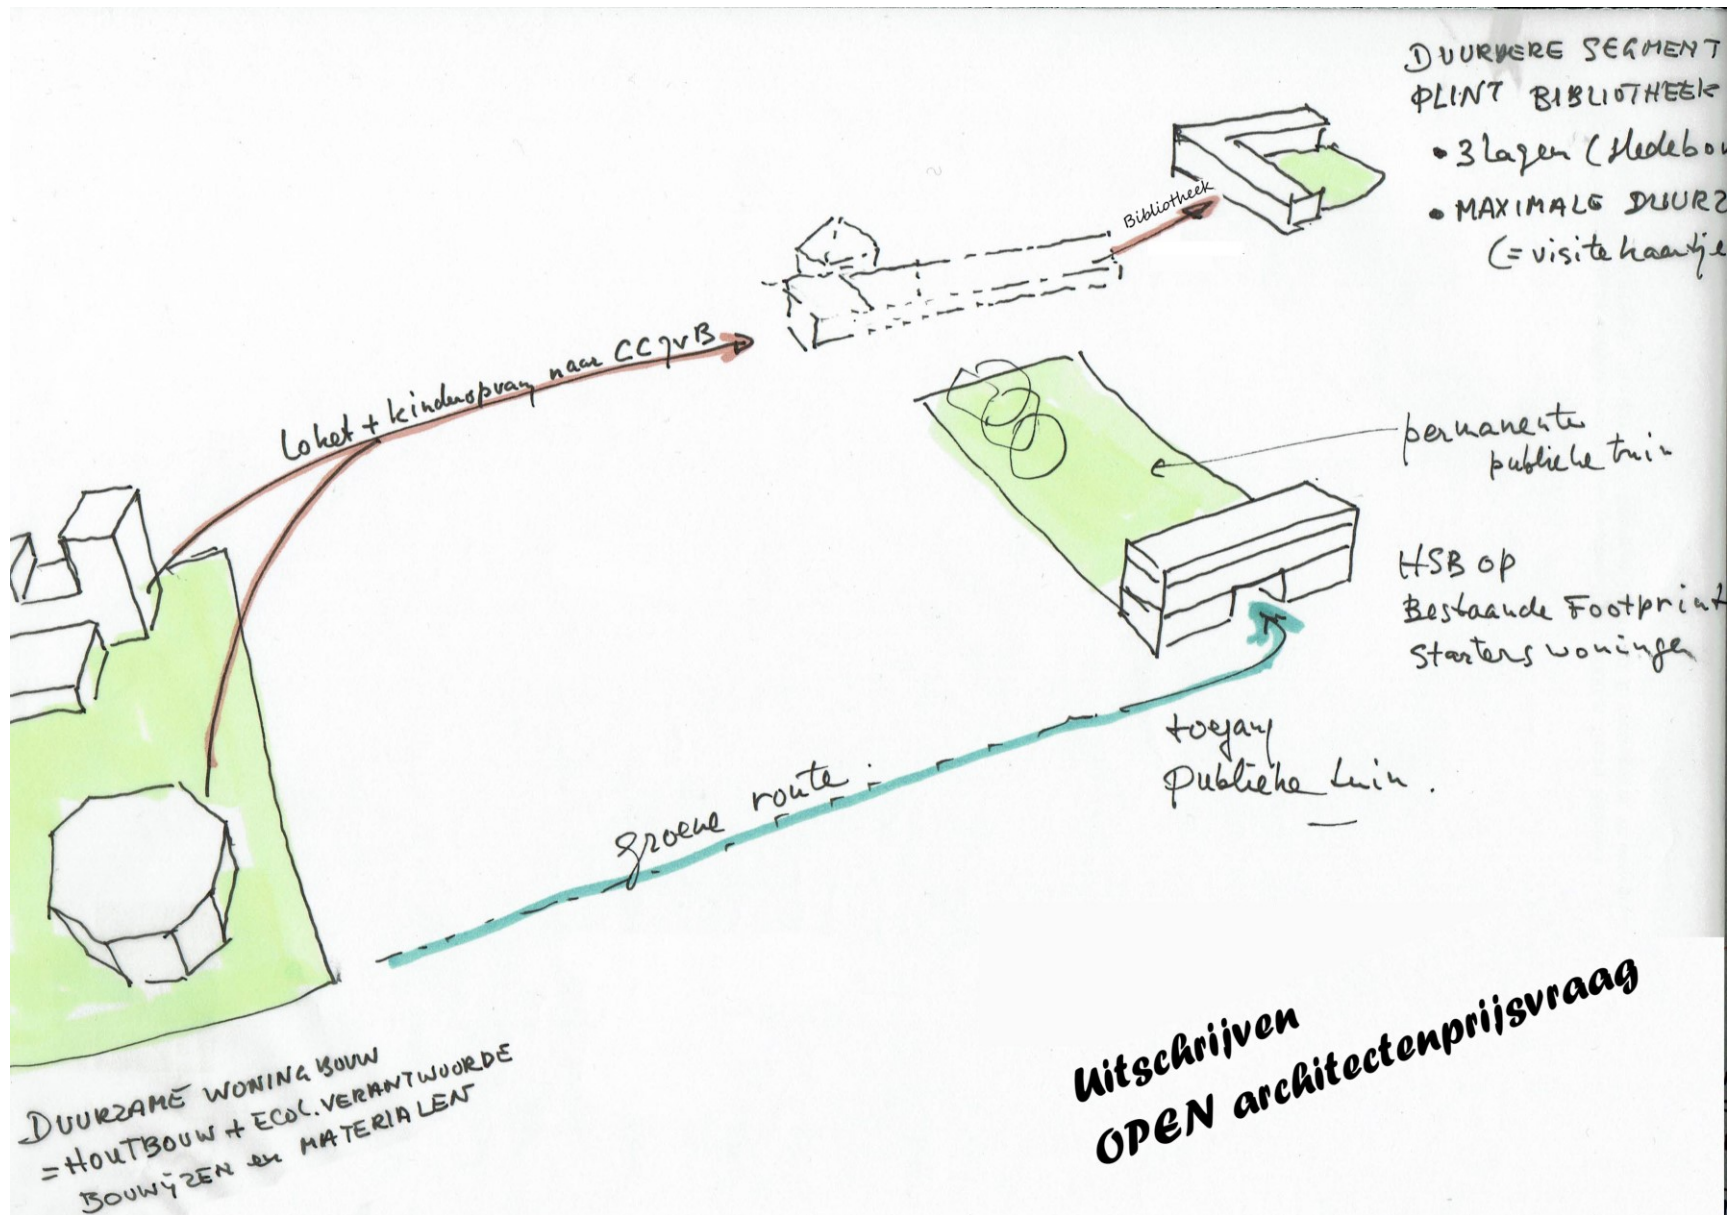 DUURDERE SEGMENT
PLINT BIBLIOTHEEK
• 3 lagen (
• MAXIMALE DUURZ
(= visitekaartje
Bibliotheek
loket + kinderopvang naar CC JvB
permanente
publieke tuin
HSB op
Bestaande Footprint
Starterswoningen
toegang
Publieke tuin.
groene route
DUURZAME WONINGBOUW
= HOUTBOUW + ECOL. VERANTWOORDE
BOUWIJZEN en MATERIALEN
Uitschrijven
OPEN architectenprijsvraag